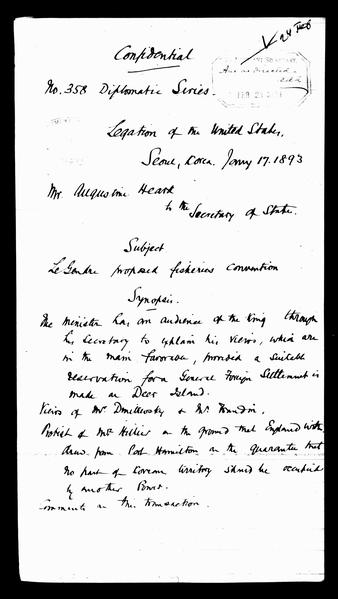 24 Feb
Confidential
No. 358 Diplomatic Series.
Legation of the United States,
Seoul, Corea. Jany 17. 1893
Mr. Augustine Heard
to the Secretary of State.
Subject
LeGendre proposed fisheries convention
Synopsis.
The Minister has an audience of the King through
his Secretary to explain his views, which are
in the main favorable, provided a suitable
reservation for a General Foreign Settlement is
made on Deer Island.
Views of Mr Dmitrevsky & Mr. Frandin.
Protest of Mr Hillier on the ground that England with
drew from Port Hamilton on the guarantee that
no part of Corean territory should be occupied
by another Power.
Comments on this transaction.